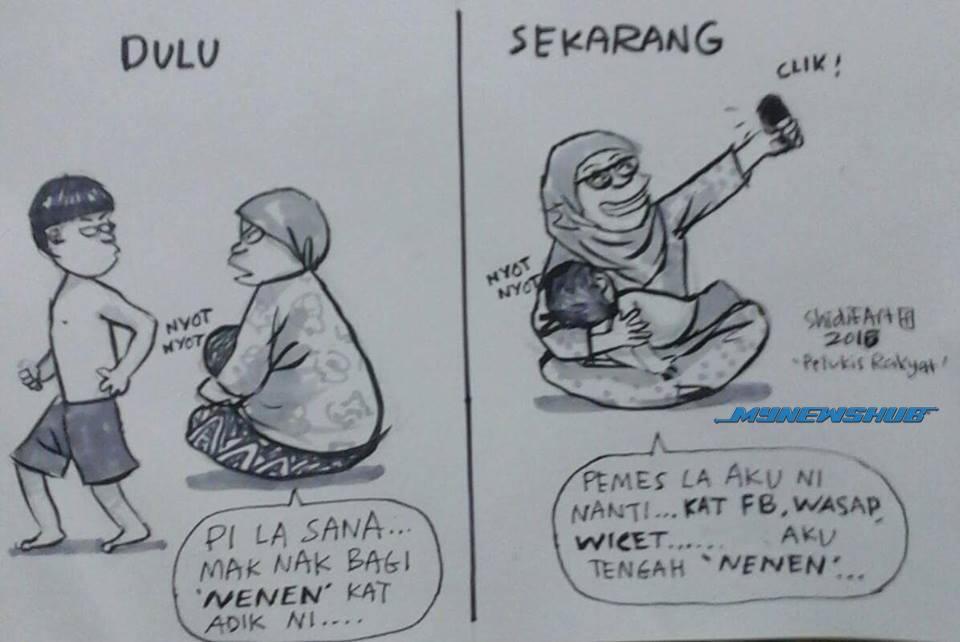 DULU
NYOT
NYOT
PI LA SANA...
MAK NAK BAGI
'NENEN' KAT
ADIK NI....
SEKARANG
CLIK!
NYOT
NYOT
ShidiEArt
2016
"Pelukis Rakyat"
MYNEWSHUB
PEMES LA AKU NI
NANTI... KAT FB, WASAP,
WICET...... AKU
TENGAH 'NENEN'...